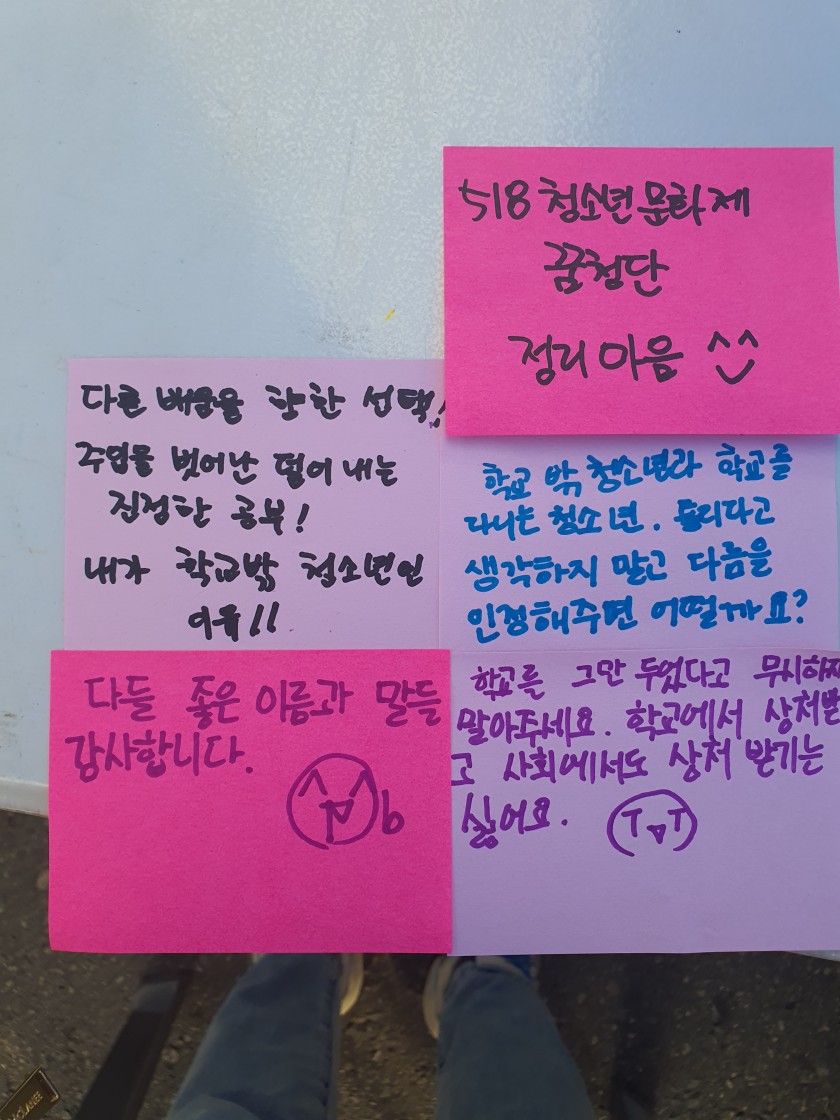 518 청소년 문화제
꿈청단
정리 마음 ^^
다른 배움을 향한 선택!
주입물 벗어난 떨어 내는
진정한 공부!
내가 학교밖 청소년인
이유!!
학교 밖 청소년과 학교를
다니는 청소년. 틀리다고
생각하지 말고 다름을
인정해주면 어떨까요?
다들 좋은 이름과 말들
감사합니다.
b
학교를 그만 두었다고 무시하지
말아주세요. 학교에서 상처받
고 사회에서도 상처 받기는
싫어요.
TㅁT